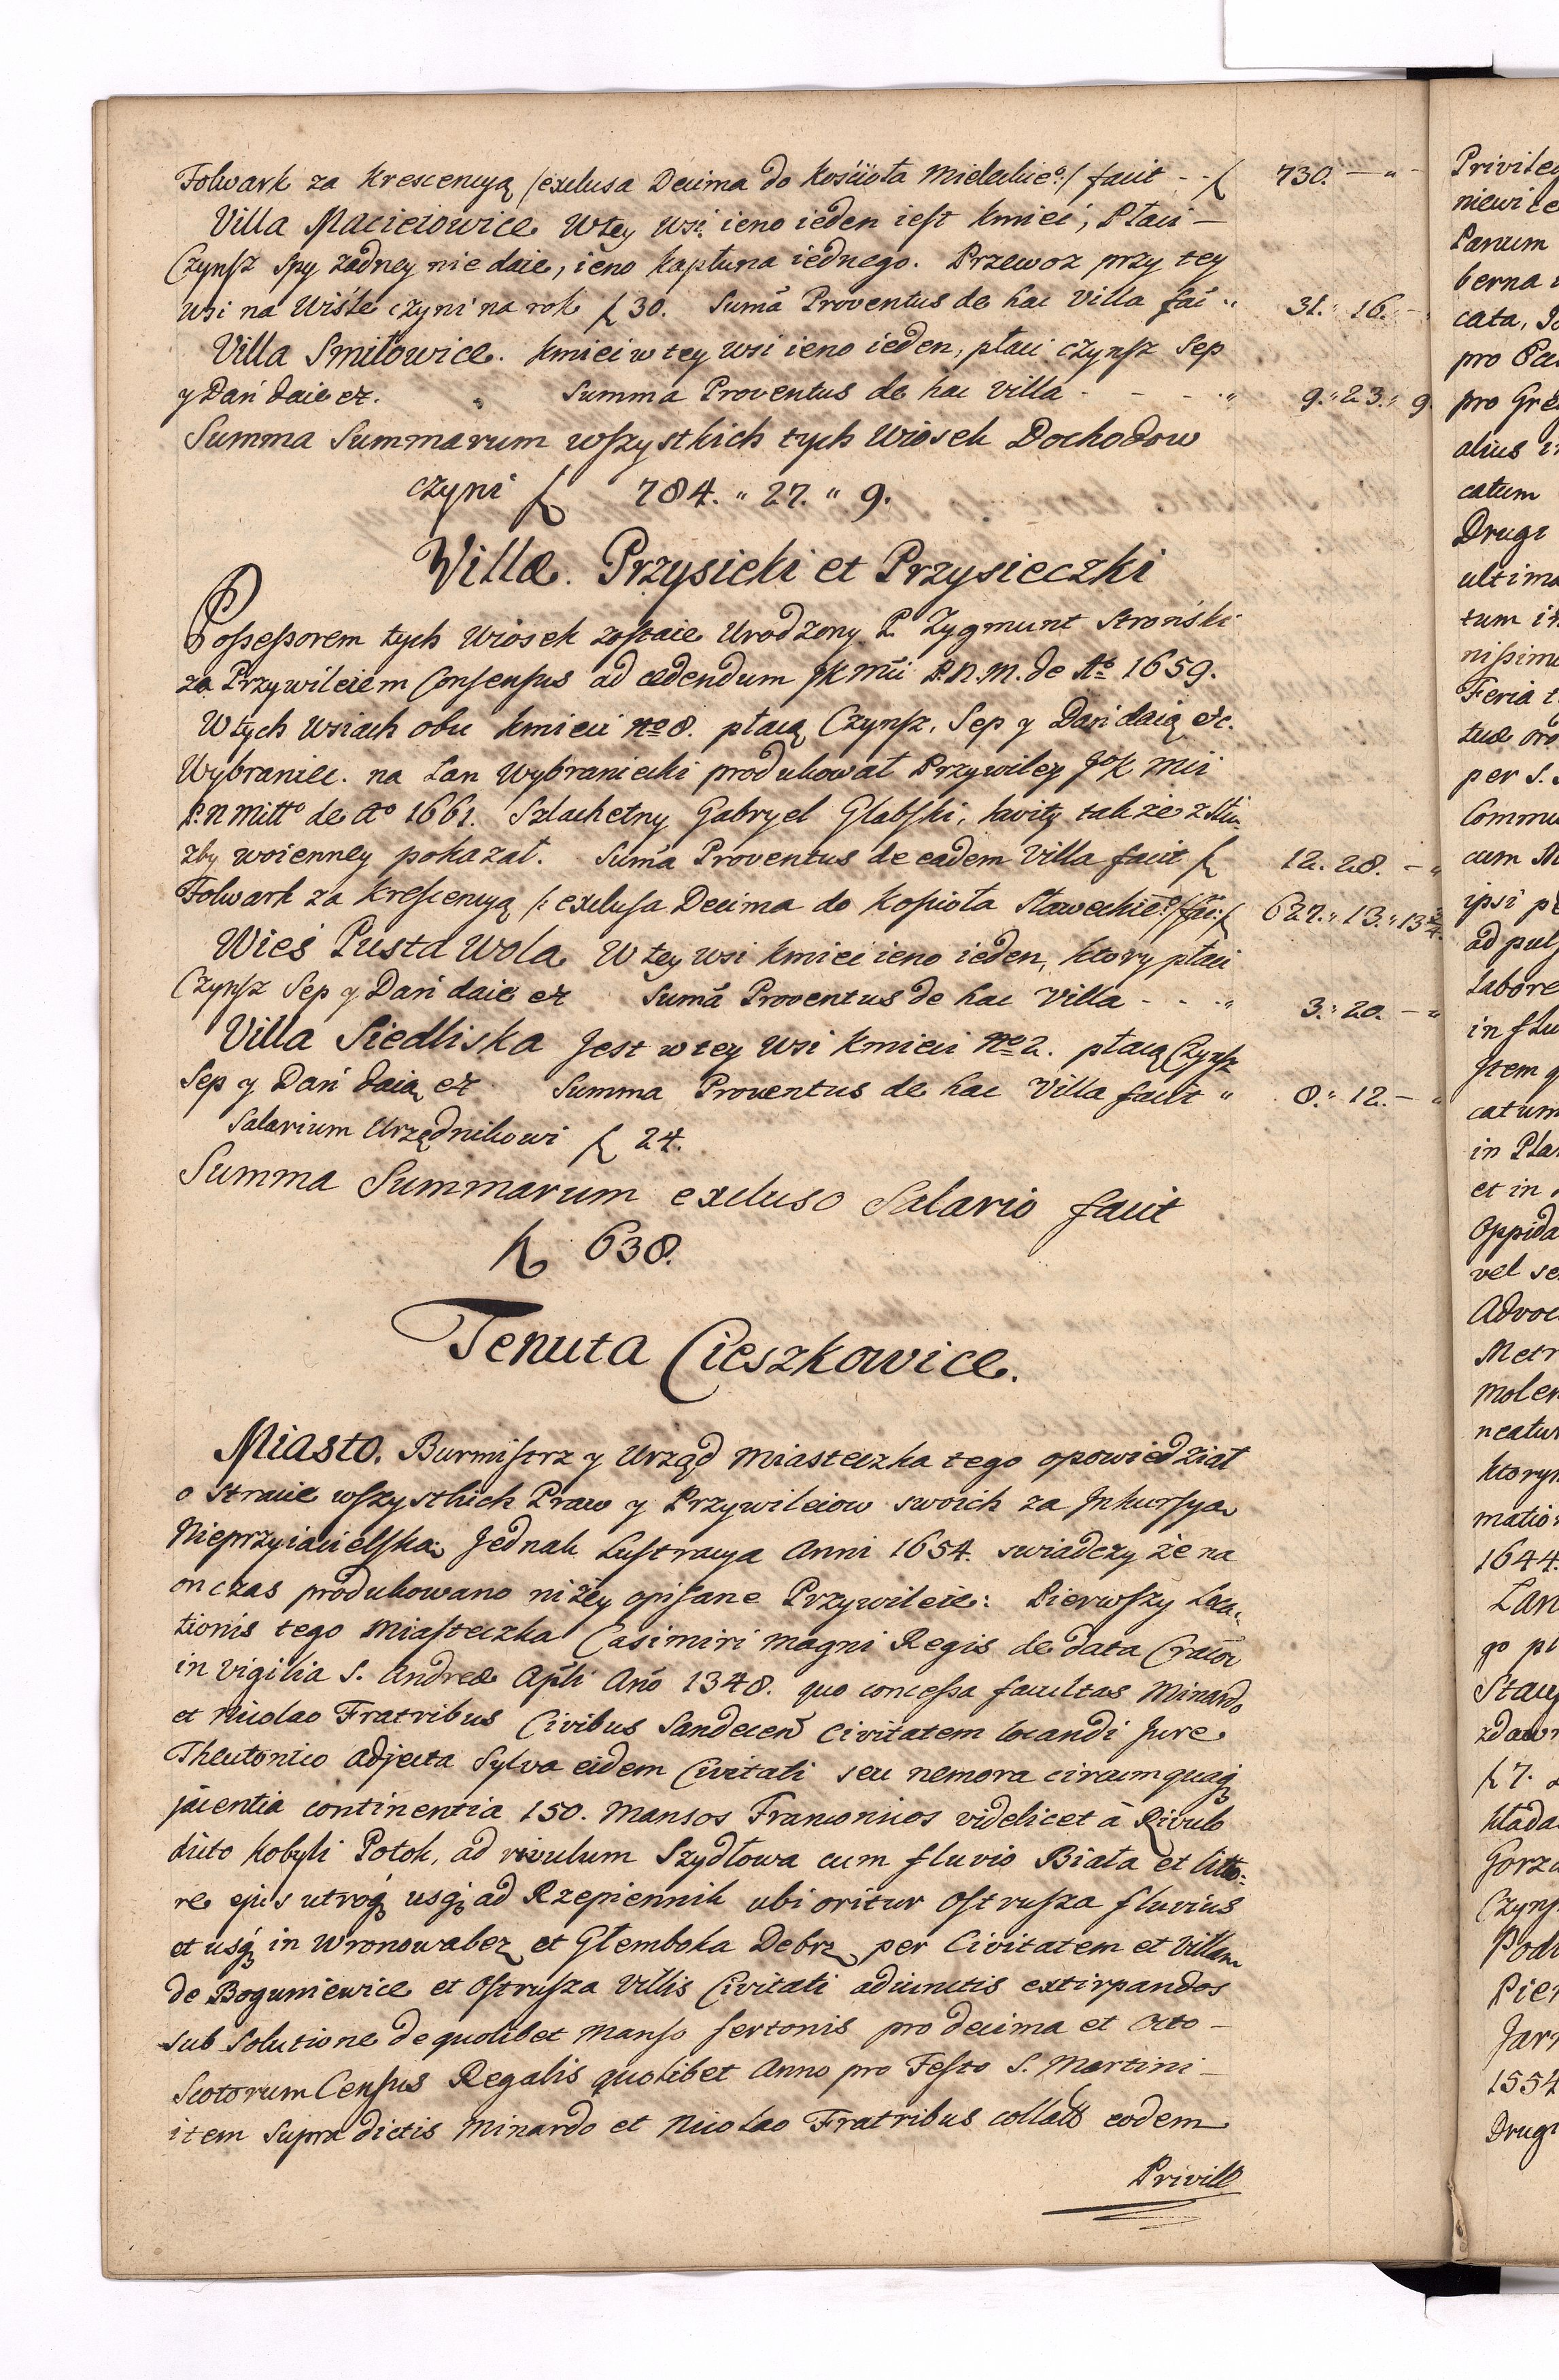 Folwark za Krescencyą /exclusa Decima do Kościoła Mieleckieº:/ facit - - f 730. — „ -
Villa Macieiowice Wtey wsi ieno ieden iest Kmieć, Płaci —
Czynsz spy żadney nie daie, ieno kapłuna iednego. Przewoz przy tey
wsi na Wiśle czyni na rok f 30. Sumā Proventus de hac Villa fac „ 31. „ 16. -
Villa Smiłowice. Kmieć w tey wsi ieno ieden, płaci czynsz Sep
y Dań daie etc. „ Summa Proventus de hac villa - - - „ 9. „ 23. „ 9.
Summa Summarum wszystkich tych Wiosek Dochodow
czyni f 784. „ 27. „ 9.
Villæ. Przysieki et Przysieczki
Possessorem tych Wiosek zostaie Urodzony P. Zygmunt Stroński
za Przywileiem Consensus ad cedendum JK Mći P. N. M. de Aº 1659.
W tych Wsiach obu Kmieci Nº 8. płacą Czynsz, Sep y Dań daią etc.
Wybraniec. na Łan Wybraniecki produkował Przywiley JoK Mci
P. N Mittº de Aº 1661. Szlachetny Gabryel Głabski, kwity także z Słu-
żby woienney pokazał. Sumā Proventus de eadem Villa facit f 12. 28. — „
Folwark za Krescencyą /: exclusa Decima do Koscioła Sławeckieº:/ fac: f 627. „ 13. „ 13 3/4.
Wieś Pusta Wola W tey wsi Kmieć ieno ieden, ktory płaci
Czynsz Sep y Dań daie etc Sumā Proventus de hac Villa - - - „ 3. „ 20. — „
Villa Siedliska Jest w tey Wsi Kmieci Nº 2. płacą Czynsz
Sep y Dań daią etc Summa Proventus de hac Villa facit „ 8. „ 12. — „
Salarium Urzędnikowi f 24.
Summa Summarum excluso Salario facit
f 638.
Tenuta Cieszkowice.
Miasto. Burmistrz y Urząd Miasteczka tego opowiedział
o stracie wszystkich Praw y Przywileiow swoich za Jnkursya
Nieprzyiacielską. Jednak Lustracya Anni 1654. swiadczy że na
on czas produkowano niżey opisane Przywileie: Pierwszy Loca-
tionis tego Miasteczka Casimiri Magni Regis de data Cracov
in Vigilia S. Andreæ Apli Anō 1348. quo concessa facultas Minardo
et Nicolao Fratribus Civibus Sandecen Civitatem locandi Jure
Theutonico adjecta Sylva eidem Civitati seu nemora circumquaq
jacentia continentia 150. Mansos Franconicos videlicet à Rivulo
dicto Kobyli Potok, ad rivulum Szydłowa cum fluvio Biała et litto-
re ejus utroq usq ad Rzepiennik ubi oritur Ostrusza fluvius
et usq in Wronowabez et Głemboka Debrz per Civitatem et Villam
de Boguniewice et Ostrusza Villis Civitati adiunctis extirpandos
sub Solutione de quolibet Manso fertonis pro decima et Octo —
Scotorum Census Regalis quolibet Anno pro Festo S. Martini —
item supra dictis Minardo et Nicolao Fratribus collatō eodem
Privill
Privileg
niewice
Panum
berna
cata,
pro
pro Gre
alius
catum
Drugi
ultima
tum
nissimi
Feria
tuæ
per S.
Commu
cum
ipsi
ad puls
Labore
in flu
Jtem
catum
in Pla
et in
Oppida
vel se
Advoc
Metr
moler
neatur
ktory
mation
1644.
Łan
go
Stacy
zdaw
f 7.
kłada
Gorza
Czyns
Pod
Pier
Jar
1554
Drugi